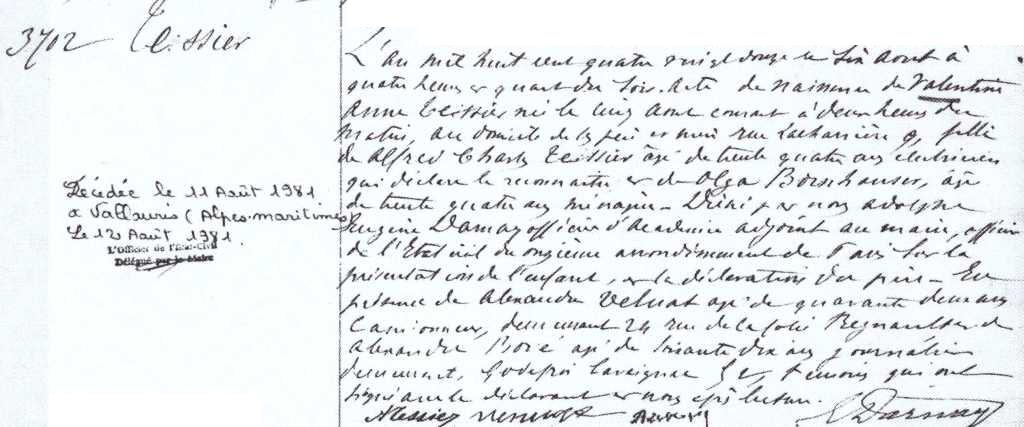 3702 Teissier
L'an mil huit cent quatre vingt douze le six aout à
quatre heures et quart du soir. Acte de naissance de Valentine
Anne Teissier née le cinq aout courant à deux heures du
matin, au domicile de ses père et mère rue Lacharrière 9, fille
de Alfred Charles Teissier agé de trente quatre ans électricien
qui déclare la reconnaitre et de Olga Borschauser, âgée
de trente quatre ans ménagère - Dréssé par nous Adolphe
Eugène Damay officier d'Académie adjoint au maire, officier
de l'Etat civil du onzième arrondissement de Paris sur la
présentation de l'enfant, et la déclaration du père - En
présence de Alexandre agé de quarante deux ans
Camionneur, demeurant 24 rue de la folie Regnault et de
Alexandre agé de soixante dix ans journalier
demeurant, Godefroi Cavaignac témoins qui ont
signé avec le déclarant et nous après lecture.
Décédée le 11 Août 1981
à Vallauris (Alpes-maritimes)
Le 12 Août 1981.
L'Officier de l'Etat-Civil
Délégué par le Maire